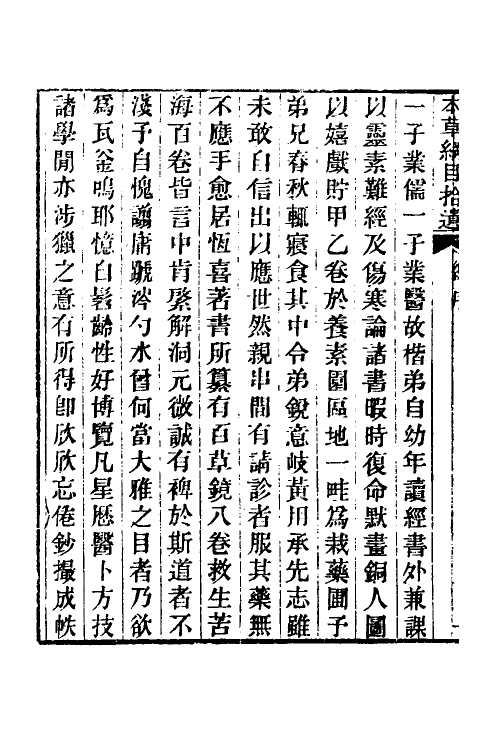 本草綱目拾遺
一子業儒一子業醫故楷弟自幼年讀經書外兼課
以靈素難經及傷寒論諸書暇時復命默畫銅人圖
以嬉戲貯甲乙卷於養素園區地一畦爲栽藥圃予
弟兄春秋輒寢食其中令弟銳意岐黃用承先志雖
未敢自信出以應世然親串間有請診者服其藥無
不應手愈居恆喜著書所纂有百草鏡八卷救生苦
海百卷皆言中肯綮解洞元微誠有裨於斯道者不
淺予自愧譾庸蹏涔勺水曾何當大雅之目者乃欲
爲瓦釜鳴耶憶自髫齡性好博覽凡星厯醫卜方技
諸學閒亦涉獵之意有所得卽欣欣忘倦鈔撮成帙